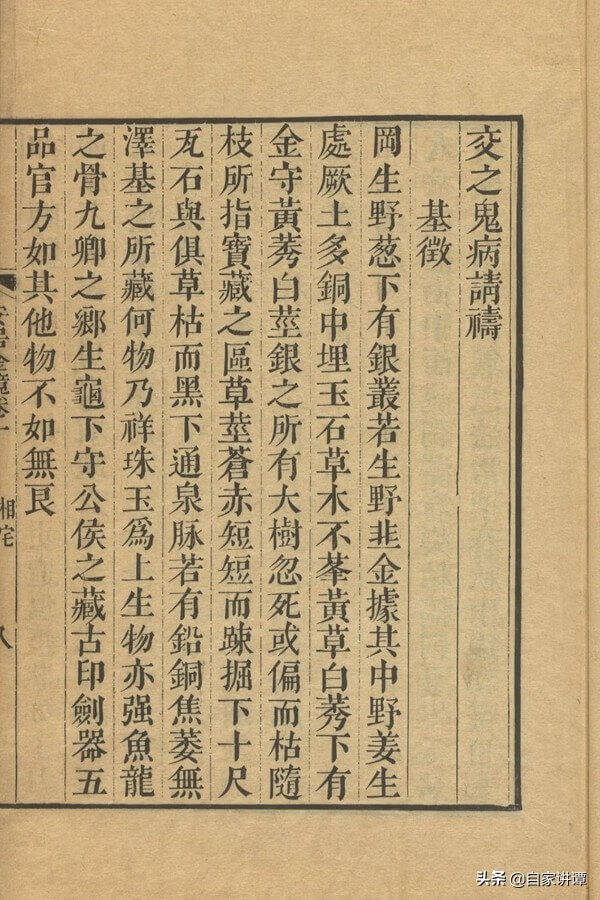 交之鬼病請禱
基徵
岡生野葱下有銀叢若生野韭金據其中野姜生
處厥土多銅中埋玉石草木不峯黃草白莠下有
金守黃莠白莖銀之所有大樹忽死或偏而枯隨
枝所指寶藏之區草莖蒼赤短短而踈掘下十尺
瓦石與俱草枯而黑下通泉脉若有鉛銅焦萎無
澤基之所藏何物乃祥珠玉爲上生物亦强魚龍
之骨九卿之鄉生龜下守公侯之藏古印劍器五
品官方如其他物不如無良
相宅
八
头条 @自家讲谭